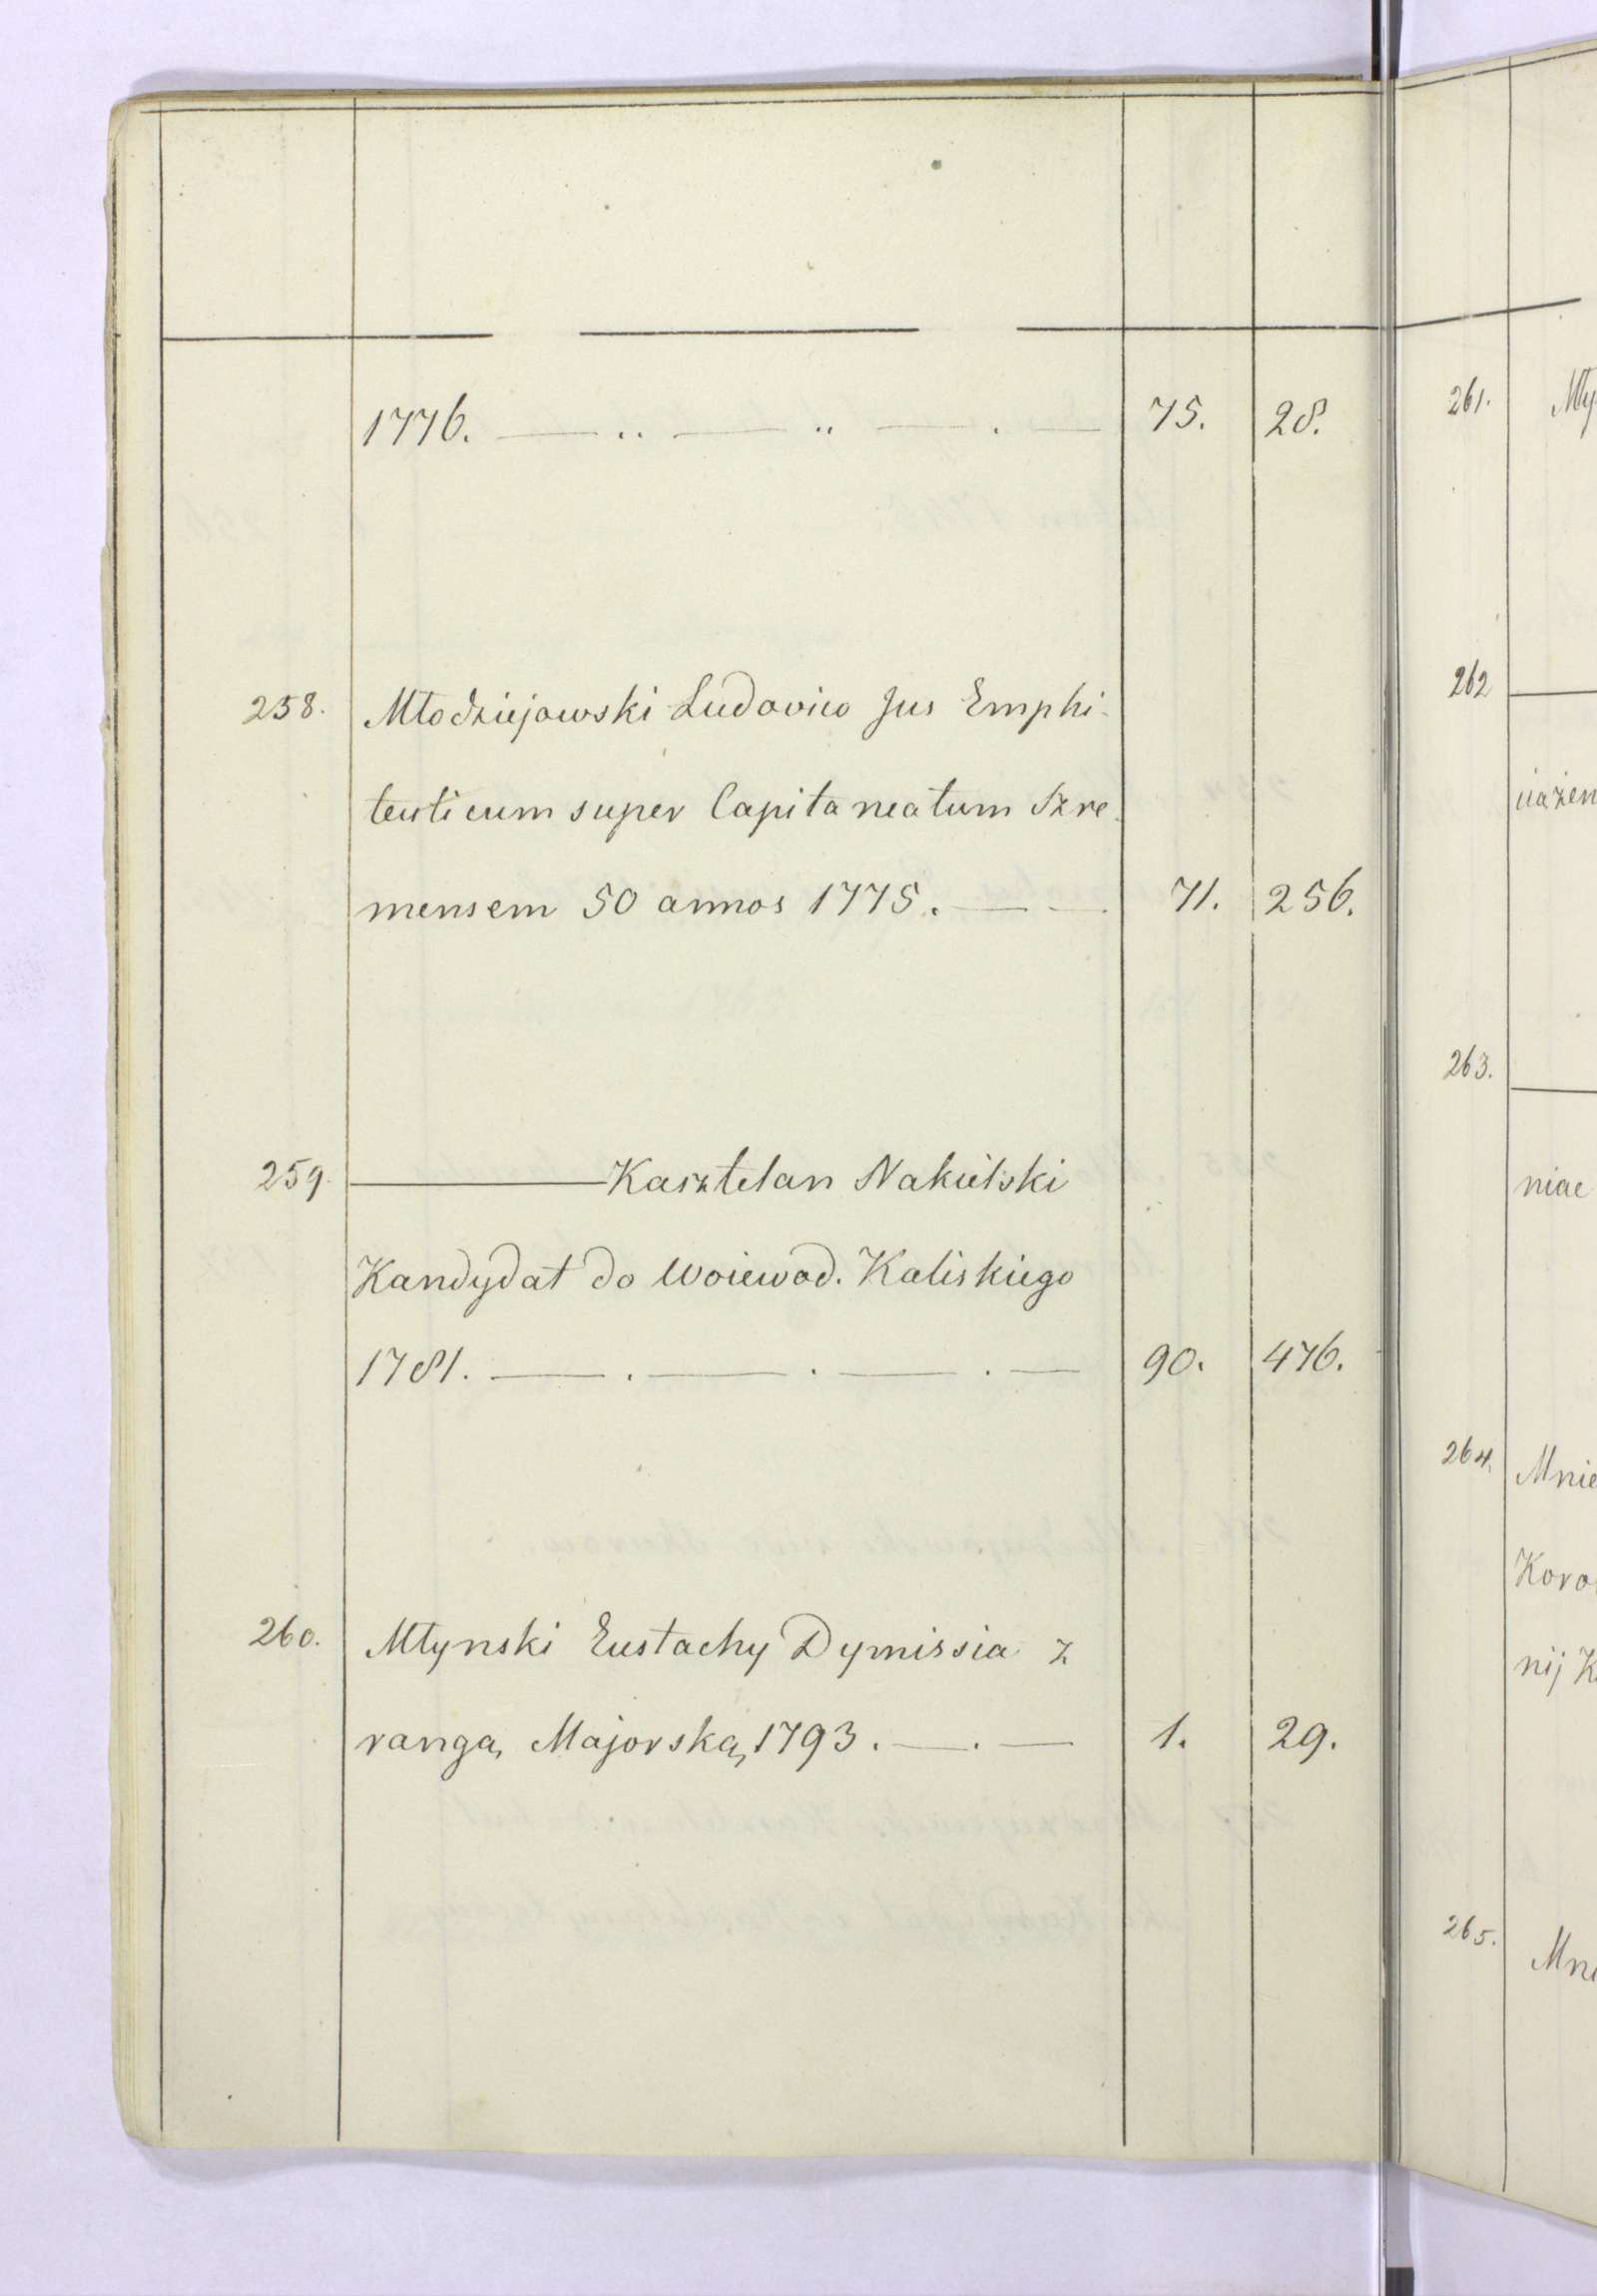 1776. — .. — .. — . — 75. 28.
258. Młodziejowski Ludovico Jus Emphi-
teuticum super Capitaneatum Szre-
mensem 50 annos 1775. — — 71. 256.
259. ——— Kasztelan Nakielski
Kandydat do Woiewod. Kaliskiego
1781. — . — . — . — 90. 476.
260. Młynski Eustachy Dymissia z
rangą Majorską 1793. — . — 1. 29.
261. Mły
262 —
iażen
263. —
niae
264. Mnie
Koro
nij K
265. Mni